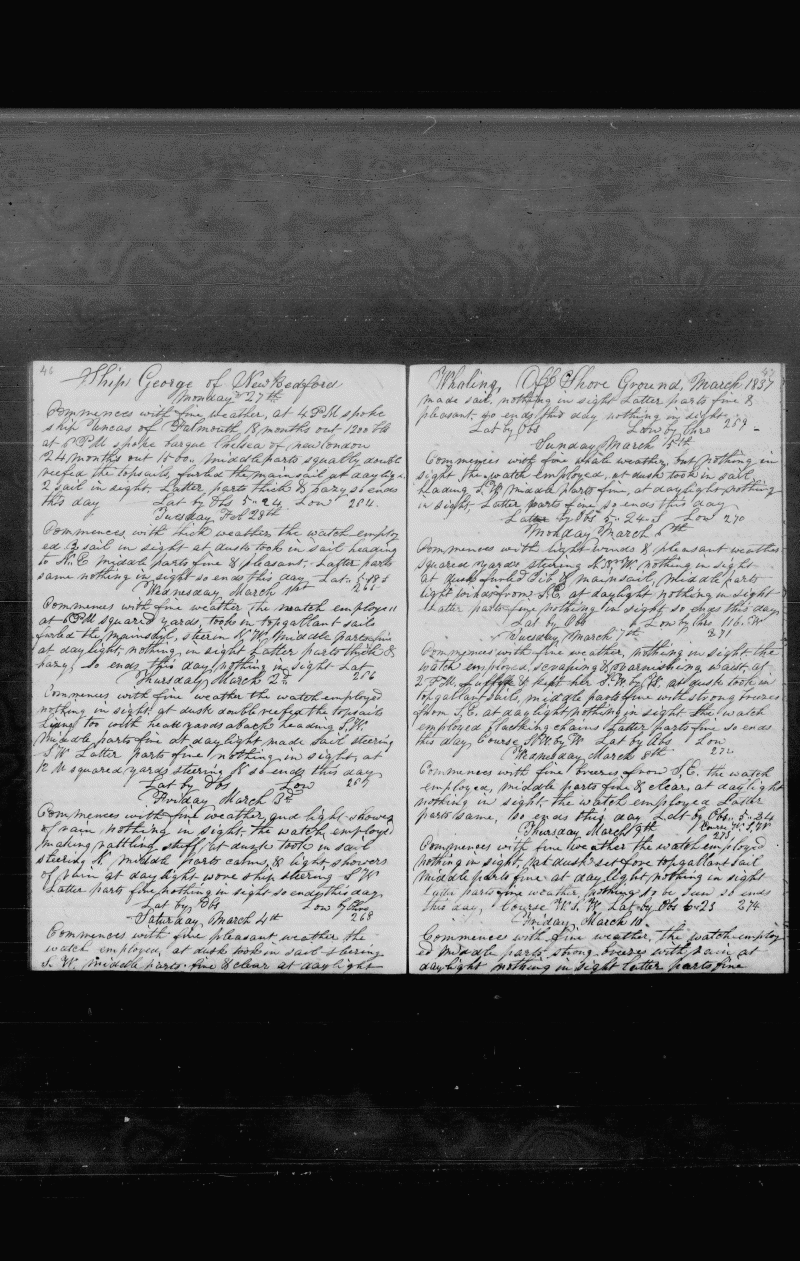 46
Ship George of New Bedford
Monday 27th
Commences with fine weather, at 4 PM spoke
ship Uncas of Falmouth 18 months out 1200 bbls
at 6 PM spoke barque Chelsea of new london
24 months out middle parts squally double
reefed the topsails, furled the mainsail at daylight
2 sail in sight. Latter parts thick & hazy so ends
this day Lat by Obs 5-24 Lon 264
Tuesday Feb 28th
Commences with thick weather the watch employ
ed 3 sail in sight at dusk took in sail heading
to N.E middle parts fine & pleasant. Latter parts
same nothing in sight so ends this day Lat
Wednesday March 1st 265
Commences with fine weather, the watch employed
at 6 PM squared yards, took in topgallant sails
furled the mainsail, steerin N.W, middle parts fine
at daylight, nothing in sight Latter parts thick &
hazy, so ends this day, nothing in sight Lat
Thursday March 2d 266
Commences with fine weather the watch employed
nothing in sight, at dusk double reefed the topsails
too with head yards aback heading S.W.
Middle parts fine at daylight made sail steering
S W Latter parts fine, nothing in sight, at
M squared yards steering N so ends this day
Lat by Obs Lon 267
Friday March 3d
Commences with fine weather, and light shower
of rain nothing in sight, the watch employed
making rattling stuff, at dusk took in sail
steering N middle parts calm, & light showers
of rain at daylight wore ship steering S W
Latter parts fine, nothing in sight so ends this day
Lat by Obs Lon by Chro
Saturday March 4th 268
Commences with fine pleasant weather the
watch employed, at dusk took in sail steering
S. W. middle parts fine & clear at daylight
47
Whaling, Off Shore Ground, March 1837
made sail, nothing in sight Latter parts fine &
pleasant. so ends this day nothing in sight,
Lat by Obs Lon by Chro 269
Sunday March 5th
Commences with fine whale weather, but nothing in
sight the watch employed, at dusk took in sail
heading S.W middle parts fine, at daylight nothing
in sight. Latter parts fine, so ends this day
Lat by Obs 5-24. S Lon 270
Monday March 6th
Commences with light winds & pleasant weather
squared yards stering N.N.W. nothing in sight
at dusk furled Jib & mainsail, middle parts
light winds from S.E, at daylight, nothing in sight
Latter parts fine nothing in sight, so ends this day
Lat by Obs Lon by Chro 116. W
Tuesday March 7th 271
Commences with fine weather, nothing in sight the
watch employed scraping & varnishing waist, at
2 PM & kept her S.W by W. at dusk took in
topgallant sail, middle parts fine with strong breezes
from S.E. at daylight nothing in sight the watch
employed blacking chains Latter parts fine so ends
this day, Course S.W by W Lat by Obs Lon
Wednesday March 8th 272
Commences with fine breezes from S.E. the watch
employed, middle parts fine & clear, at daylight
nothing in sight, the watch employed Latter
parts same, so ends this day Lat by Obs. 5-24
Thursday March 9th Course W. S. W
273
Commences with fine weather the watch employed
nothing in sight, at dusk set fore topgallant sail
middle parts fine at day light, nothing in sight
Latter parts fine weather, nothing to be seen so ends
this day, Course W.S.W Lat by Obs 6-23 274
Friday, March 10
Commences with fine weather, the watch employ
ed middle parts strong breezes with rain at
daylight nothing in sight latter parts fine